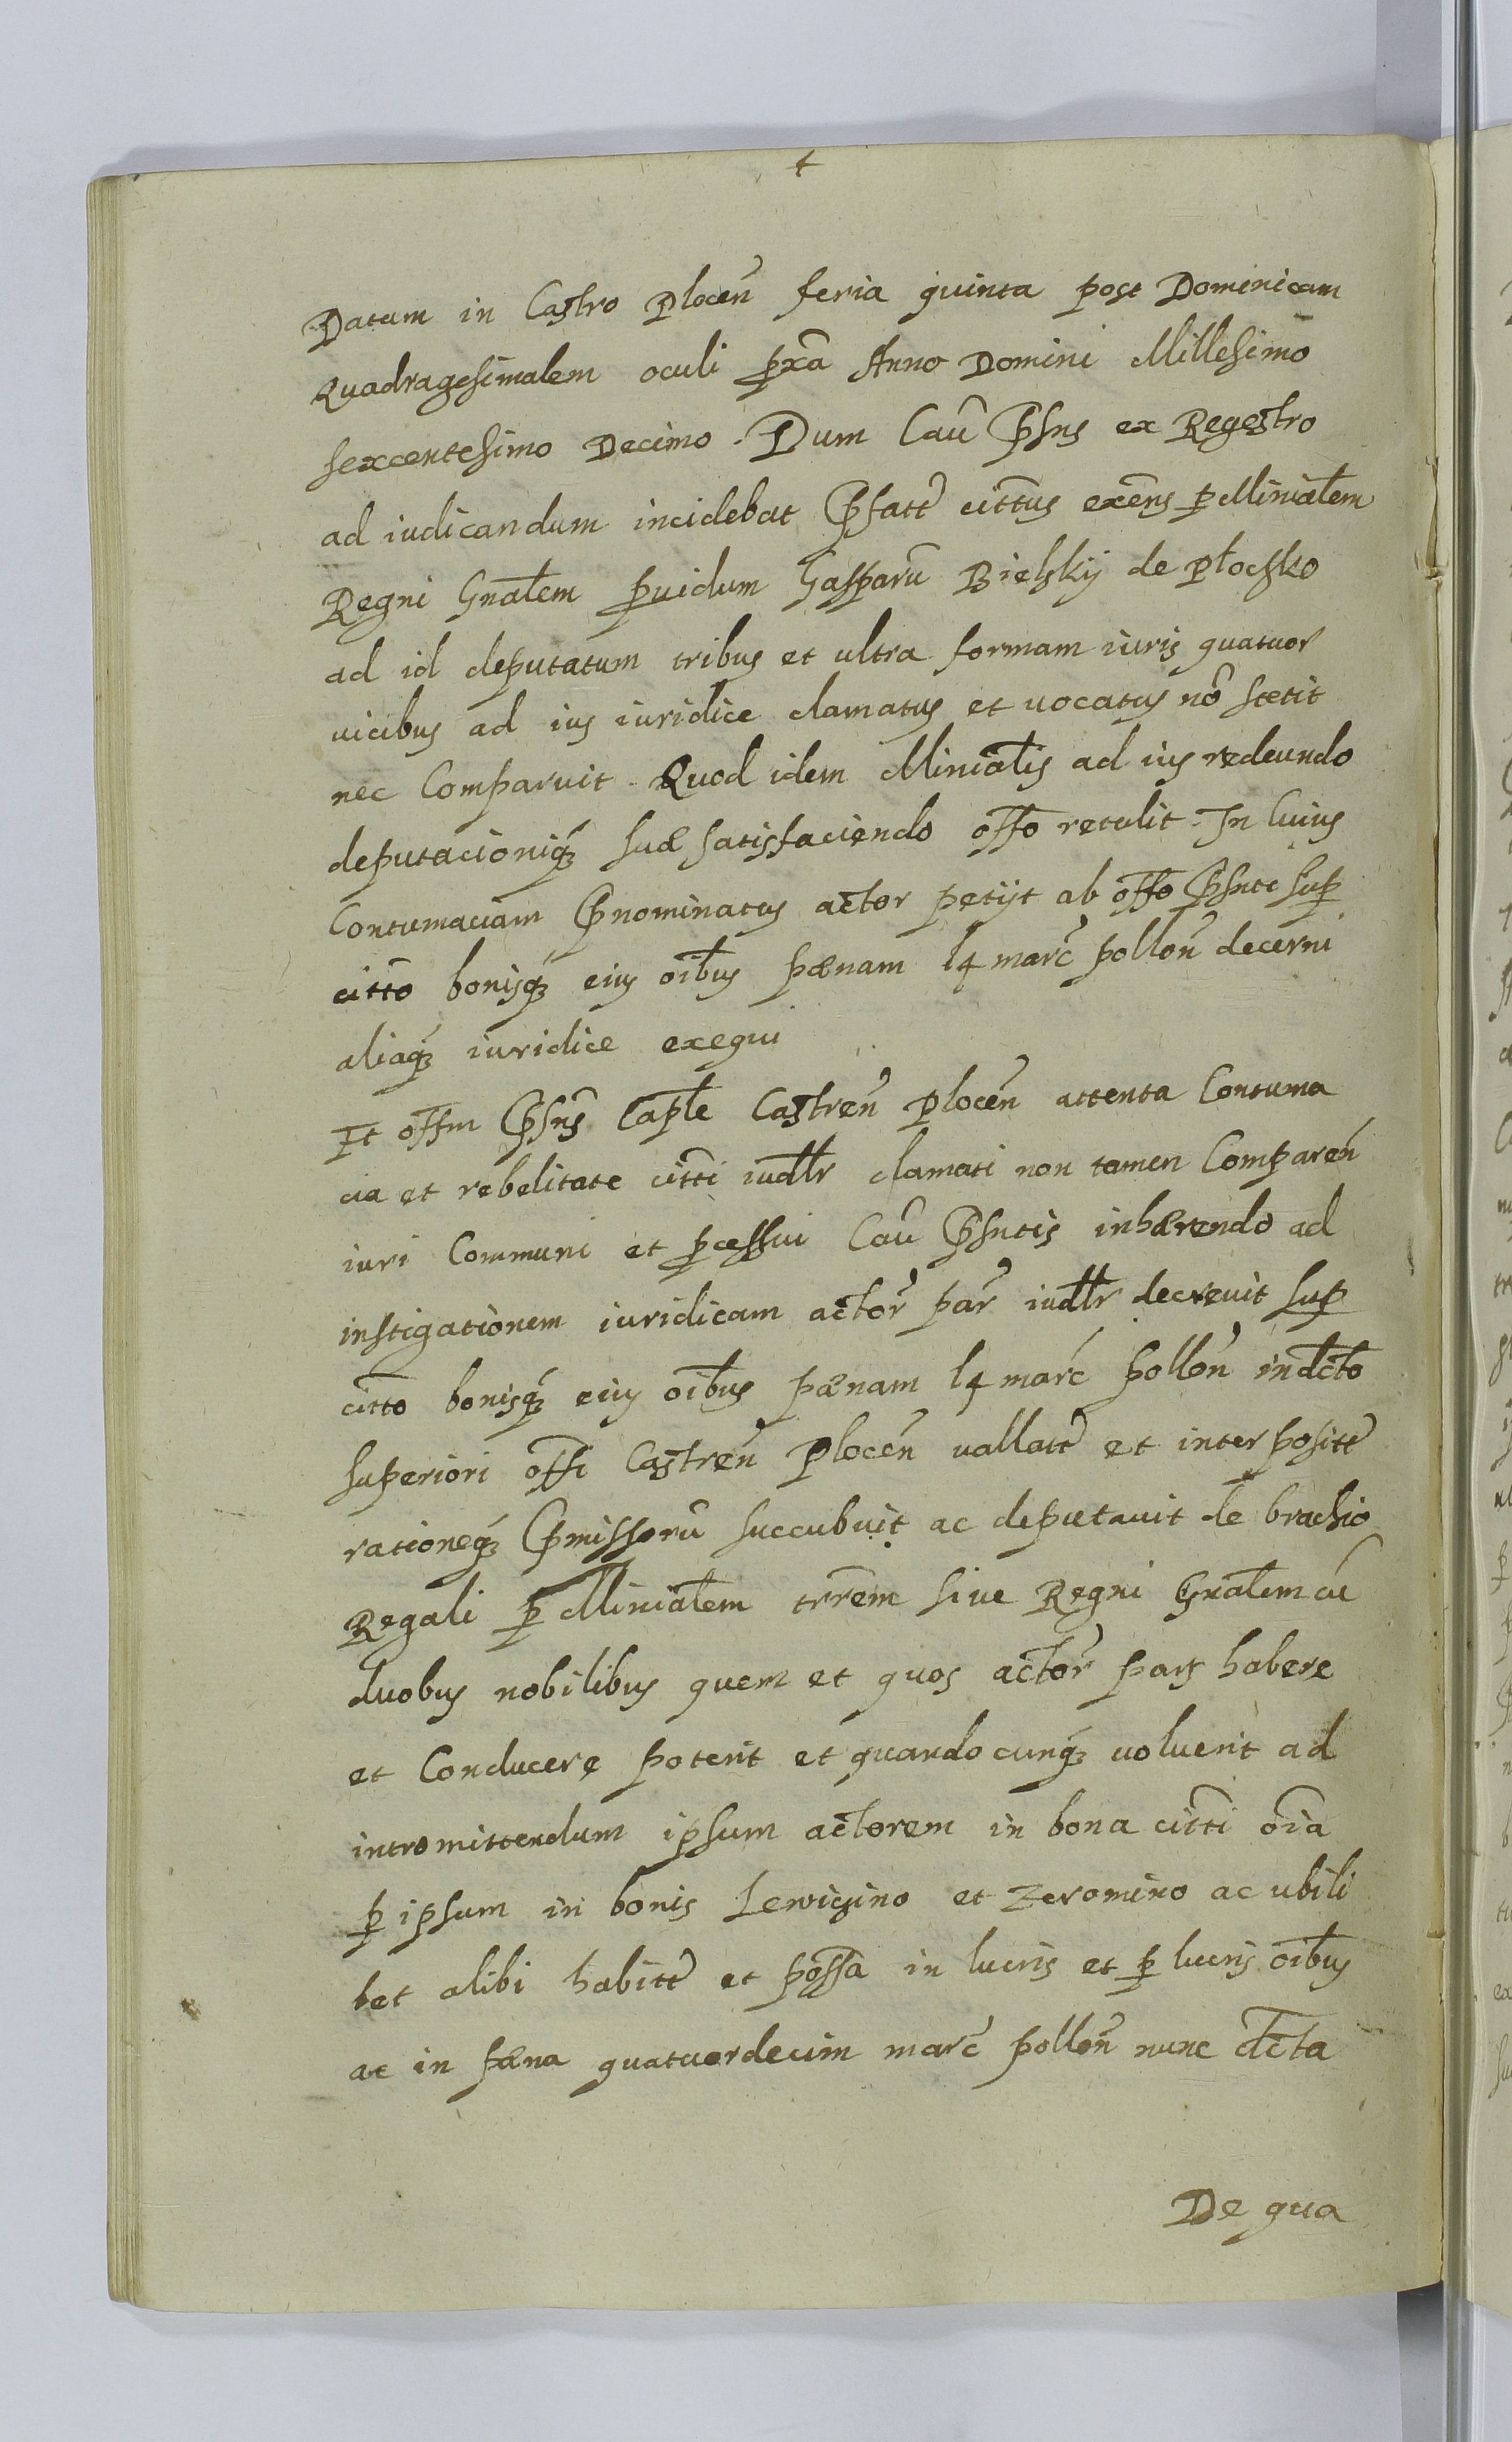 4
Datum in Castro Plocen̄ feria quinta post Dominicam
Quadragesimalem oculi p̱xā Anno Domini Millesimo
sexcentesimo Decimo. Dum Caū P̄sns ex Regestro
ad iudicandum incidebat P̄fatt̄ citt̄us exen̄s p̱ Miniāl̄em
Regni Gnāl̄em p̱uidum Gasparū Bielskij de Płochsko
ad id deputatum tribus et ultra formam iuris quatuor
uicibus ad ius iuridice clamatus et uocatus nō stetit
nec Comparuit. Quod idem Miniāl̄is ad ius redeundo
deputacioniq́ȝ suæ satisfaciendo offō retulit. In Cuius
Contumaciam P̄nominatus actor petijt ab offō P̄snte sup̱
citt̄o bonisq́ȝ eius oīb̄us pænam 14 marc̄ pollon̄ decerni
aliaq́ȝ iuridice exequi
Et offm̄ P̄sns̄ Capl̄e Castren̄ Plocen̄ attenta Contuma
cia et rebelitate citt̄i iudl̄r clamati non tamen Comparen̄
iuri Communi et p̱cessui Caū P̄sntis inhærendo ad
instigationem iuridicam actor̄ par̄ iudl̄r decreuit sup̱
citt̄o bonisq́ȝ eius oīb̄us pænam 14 marc̄ pollon̄ indct̄o
superiori offī Castren̄ Plocen̄ uallatt̄ et interpositt̄
rationeq́ȝ P̄missorū succubuit ac deputauit de brachio
Regali p̱ Miniāl̄em trr̄em siue Regni Gnāl̄em cū
duobus nobilibus quem et quos actor̄ pars habere
et Conducere poterit et quandocunq́ȝ uoluerit ad
intromittendum ipsum actorem in bona citt̄i oīa
p̱ ipsum in bonis Lewicyino et Zeromino ac ubili
bet alibi habitt̄ et poss̄a in lucris et p̱ lucris oīb̄us
ac in pæna quatuordecim marc̄ pollon̄ nunc dct̄a
De qua